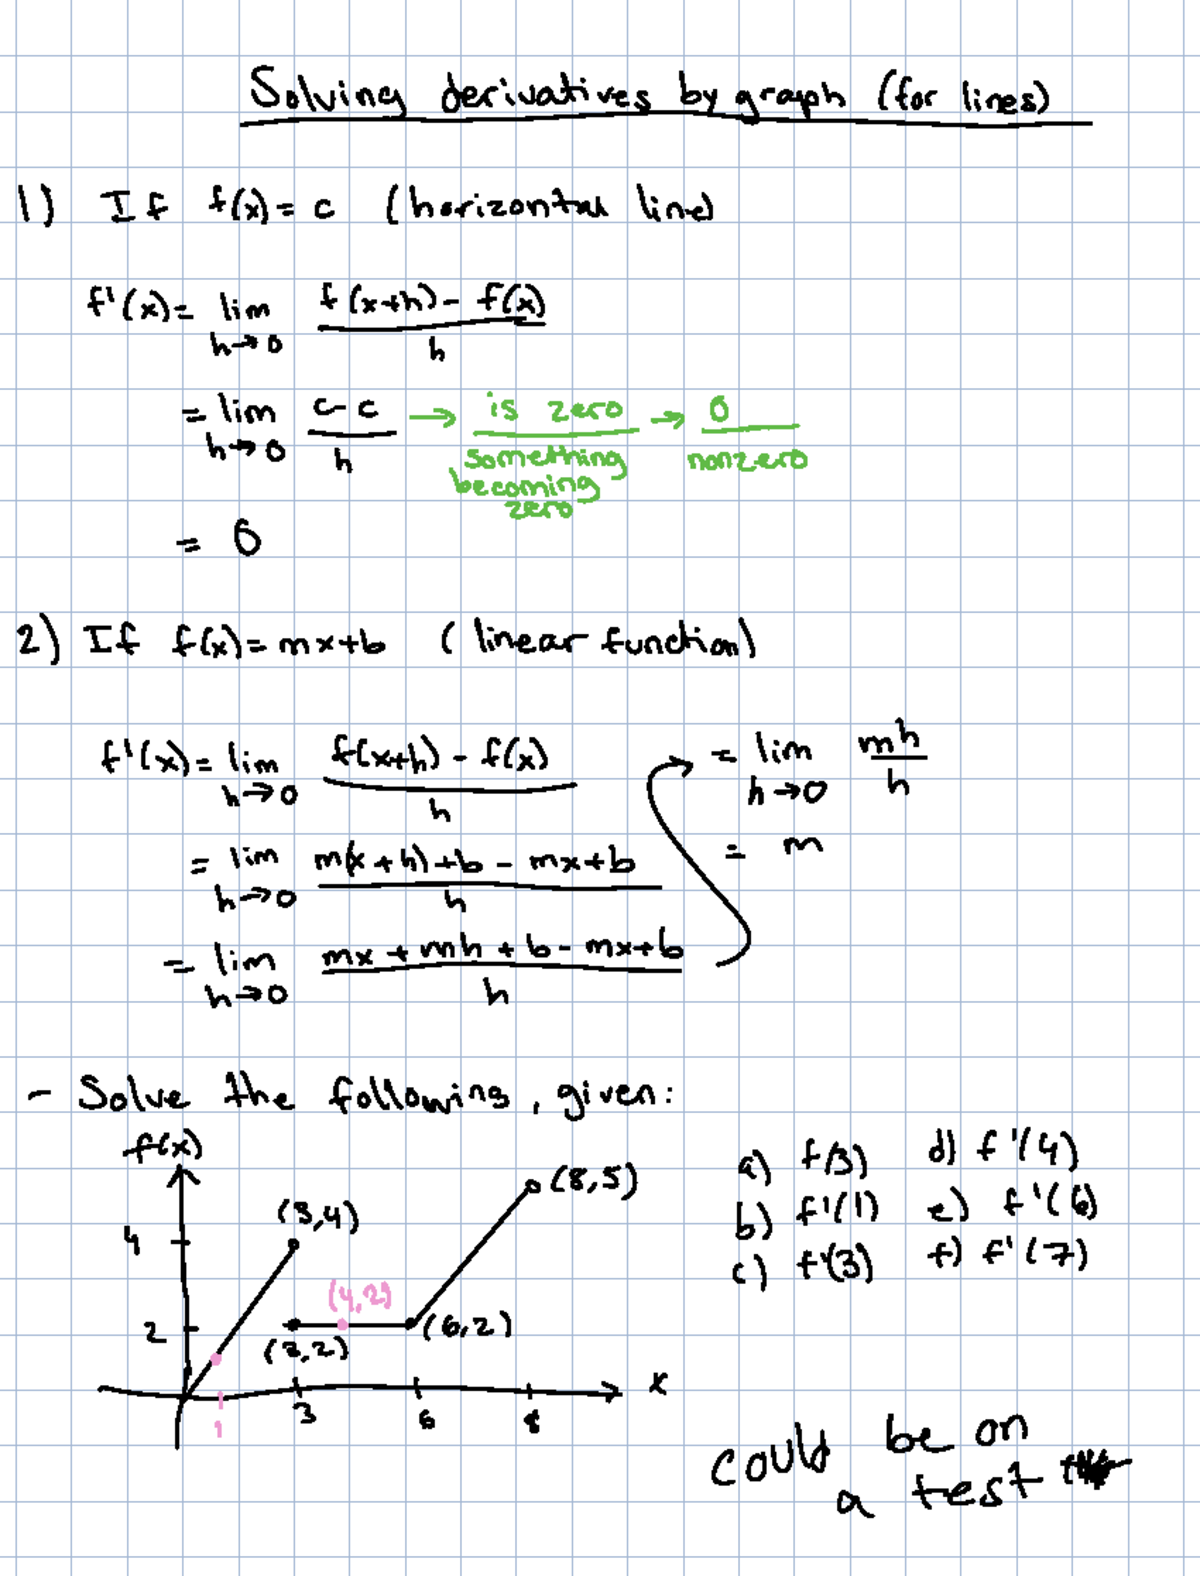 Solving derivatives by graph (for lines)
1) If f(x) = c (horizontal line)
f'(x) = lim h→0 f(x+h) - f(x) / h
= lim h→0 c - c / h → is zero / something becoming zero → 0 / nonzero
= 0
2) If f(x) = mx+b (linear function)
f'(x) = lim h→0 f(x+h) - f(x) / h
= lim h→0 m(x+h)+b - mx+b / h
= lim h→0 mx + mh + b - mx+b / h
= lim h→0 mh / h
= m
- Solve the following, given:
f(x)
(3,4)
(8,5)
4
(4,2)
2
(3,2)
(6,2)
x
1
3
6
8
a) f(3) d) f'(4)
b) f'(1) e) f'(6)
c) f'(3) f) f'(7)
could be on
a test